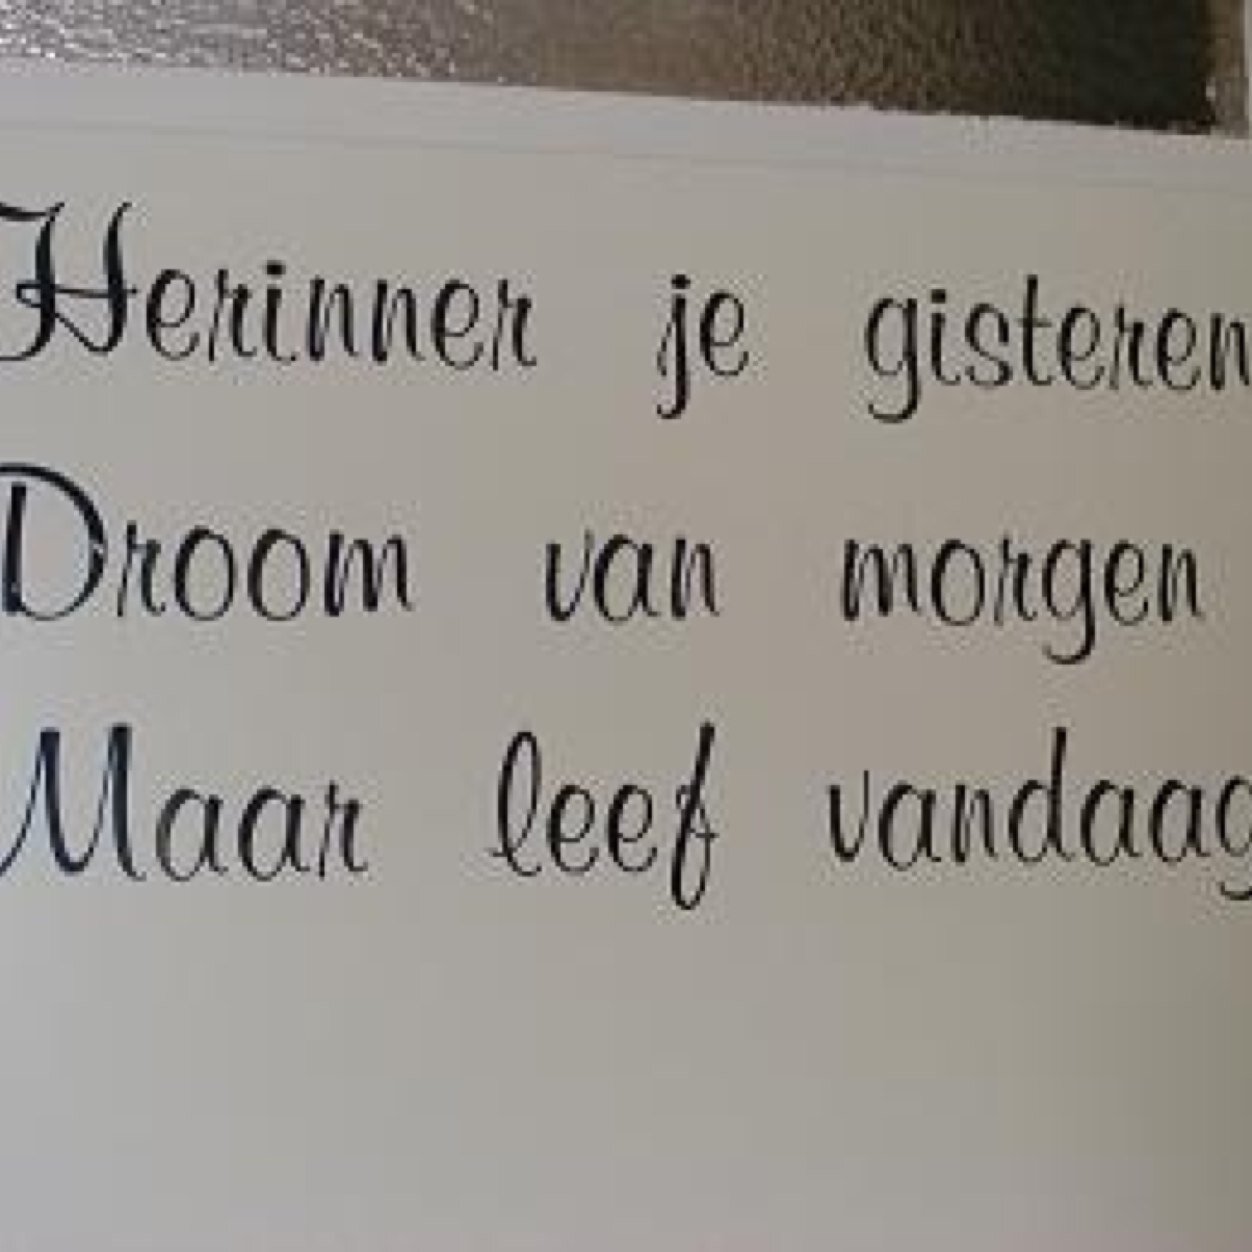 Herinner je gisteren
Droom van morgen
Maar leef vandaag